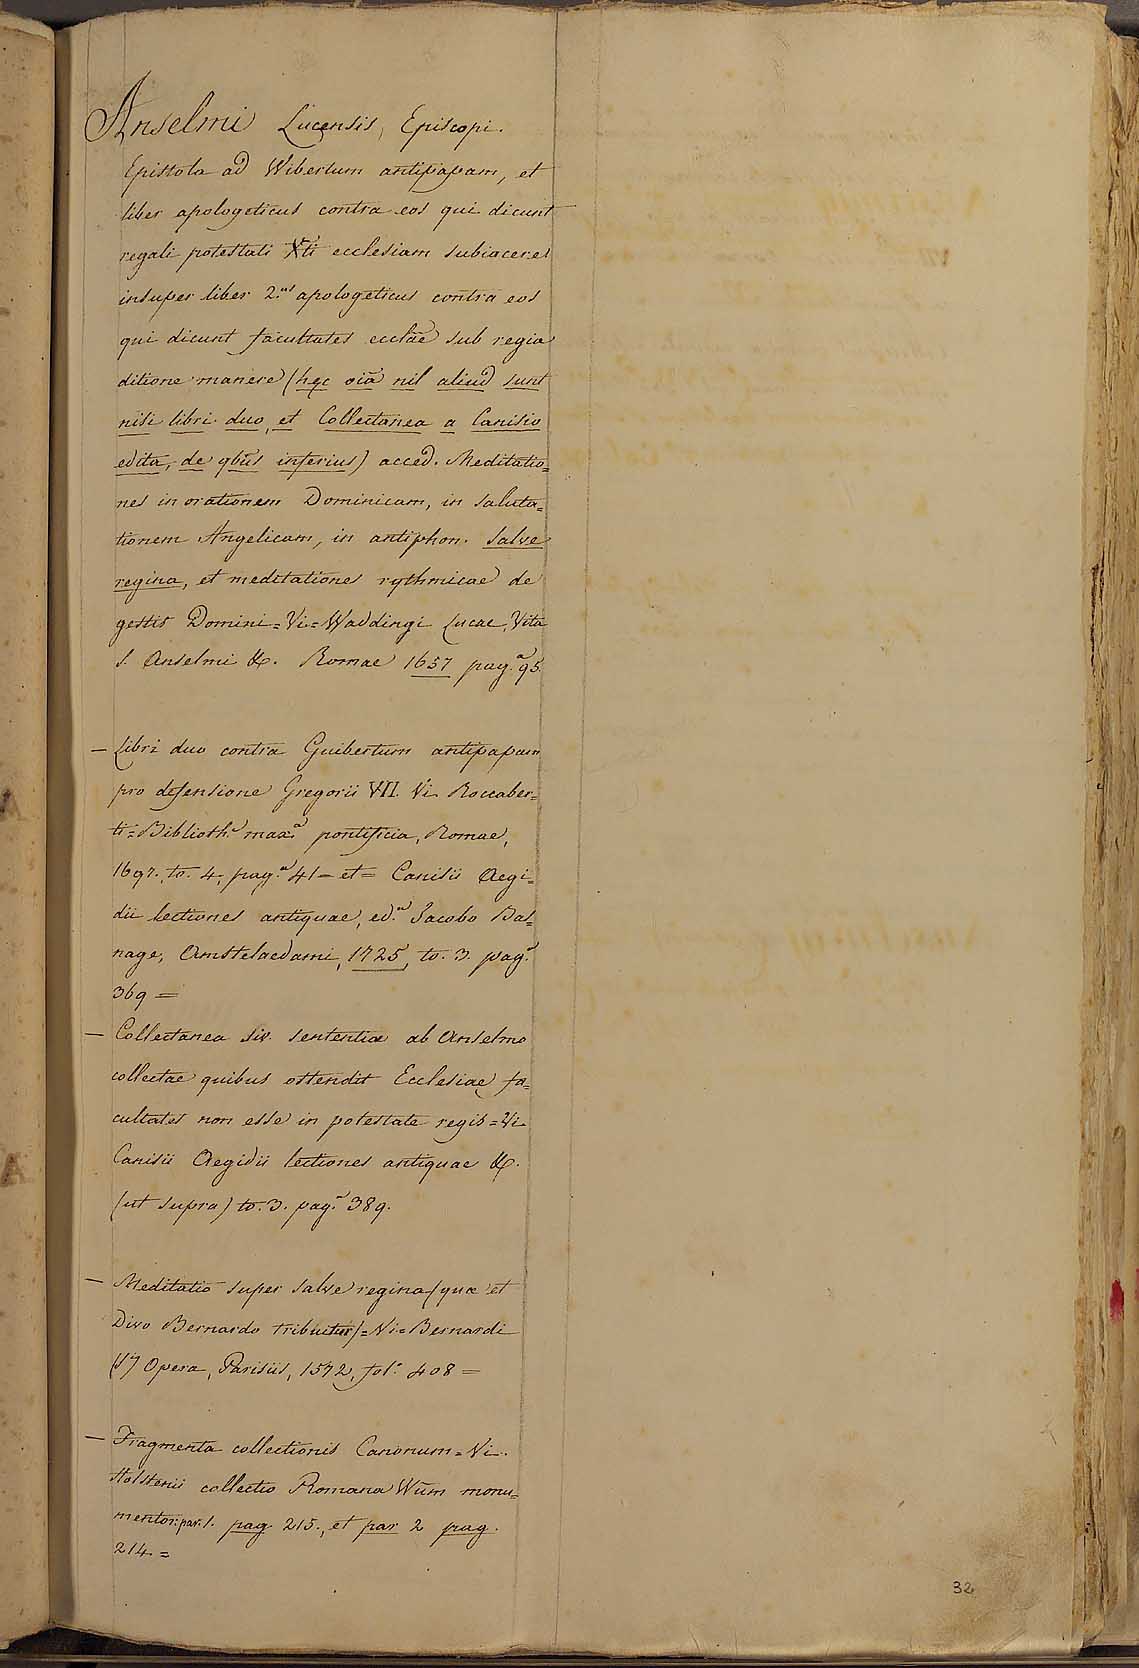 Anselmi Lucensis, Episcopi.
Epistola ad Wibertum antipapam, et
liber apologeticus contra eos qui dicunt
regali potestati Xti ecclesiam subiacere
insuper liber 2.us apologeticus contra eos
qui dicunt facultates ecclãe sub regia
ditione manere (hęc oiã nil aliud sunt
nisi libri duo, et Collectanea a Canisio
edita, de qbũs inferius) acced. Meditatio=
nes in orationem Dominicam, in saluta=
tionem Angelicam, in antiphon. Salve
regina, et meditationes rythmicae de
gestis Domini = Vi = Waddingi Lucae, Vita
S. Anselmi &c. Romae 1657 pag.a 95.
— Libri duo contra Guibertum antipapam
pro defensione Gregorii VII. Vi Roccaber=
ti = Biblioth.a max.a pontificia, Romae,
1697. to. 4, pag.a 41 = et = Canisii Aegi=
dii lectiones antiquae, ed.a Jacobo Bas=
nage, Amstelaedami, 1725, to. 3. pag.a
369 =
— Collectanea siv. sententiae ab Anselmo
collectae quibus ostendit Ecclesiae fa=
cultates non esse in potestate regis = Vi
Canisii Aegidii lectiones antiquae &c.
(ut supra) to. 3. pag.a 389.
— Meditatio super salve regina (quae et
Divo Bernardo tribuitur) = Vi = Bernardi
(S.) Opera, Parisiis, 1572, fol.o 408 =
— Fragmenta collectionis Canonum = Vi.
Holstenii collectio Romana Vũm monu=
mentor: par. 1. pag 215., et par 2 pag.
214. =
32